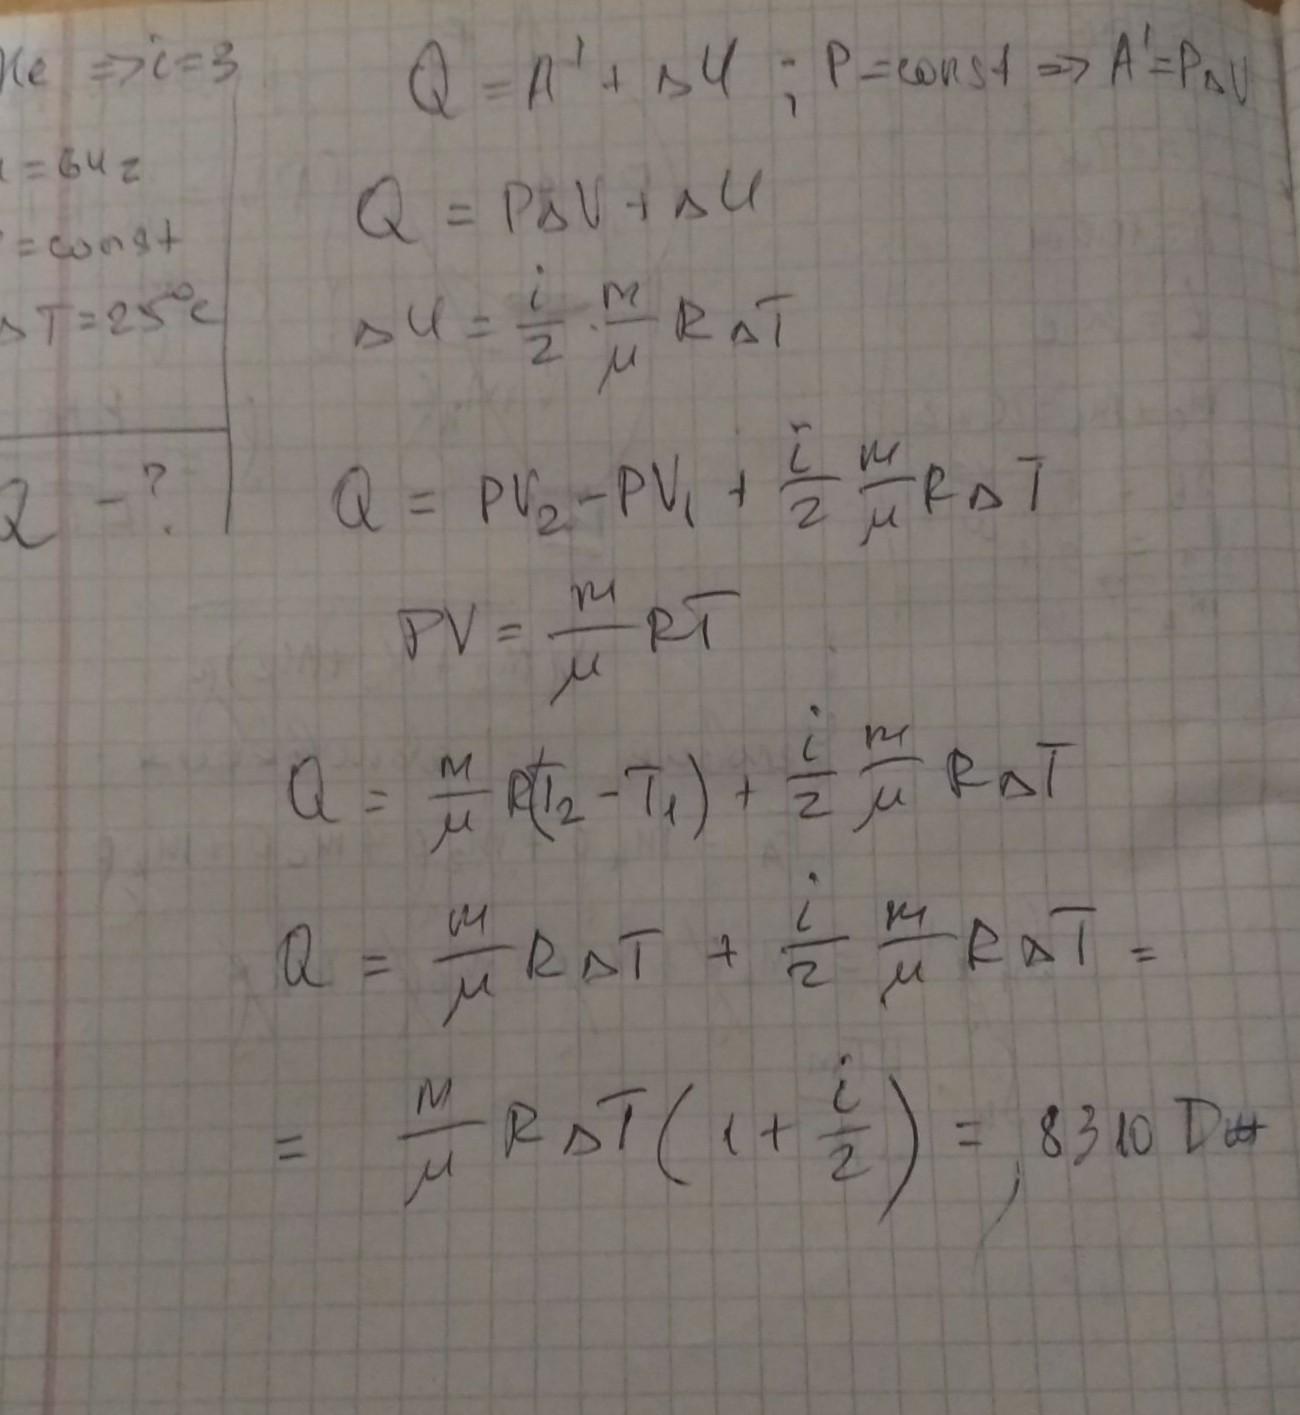 He => i=3
m = 64г
P = const
ΔT = 25°C
Q - ?
Q = A' + ΔU ; P = const => A' = PΔV
Q = PΔV + ΔU
ΔU = i/2 · m/μ R ΔT
Q = PV₂ - PV₁ + i/2 m/μ R ΔT
PV = m/μ RT
Q = m/μ R(T₂ - T₁) + i/2 m/μ R ΔT
Q = m/μ R ΔT + i/2 m/μ R ΔT =
= m/μ R ΔT (1 + i/2) = 8310 Дж